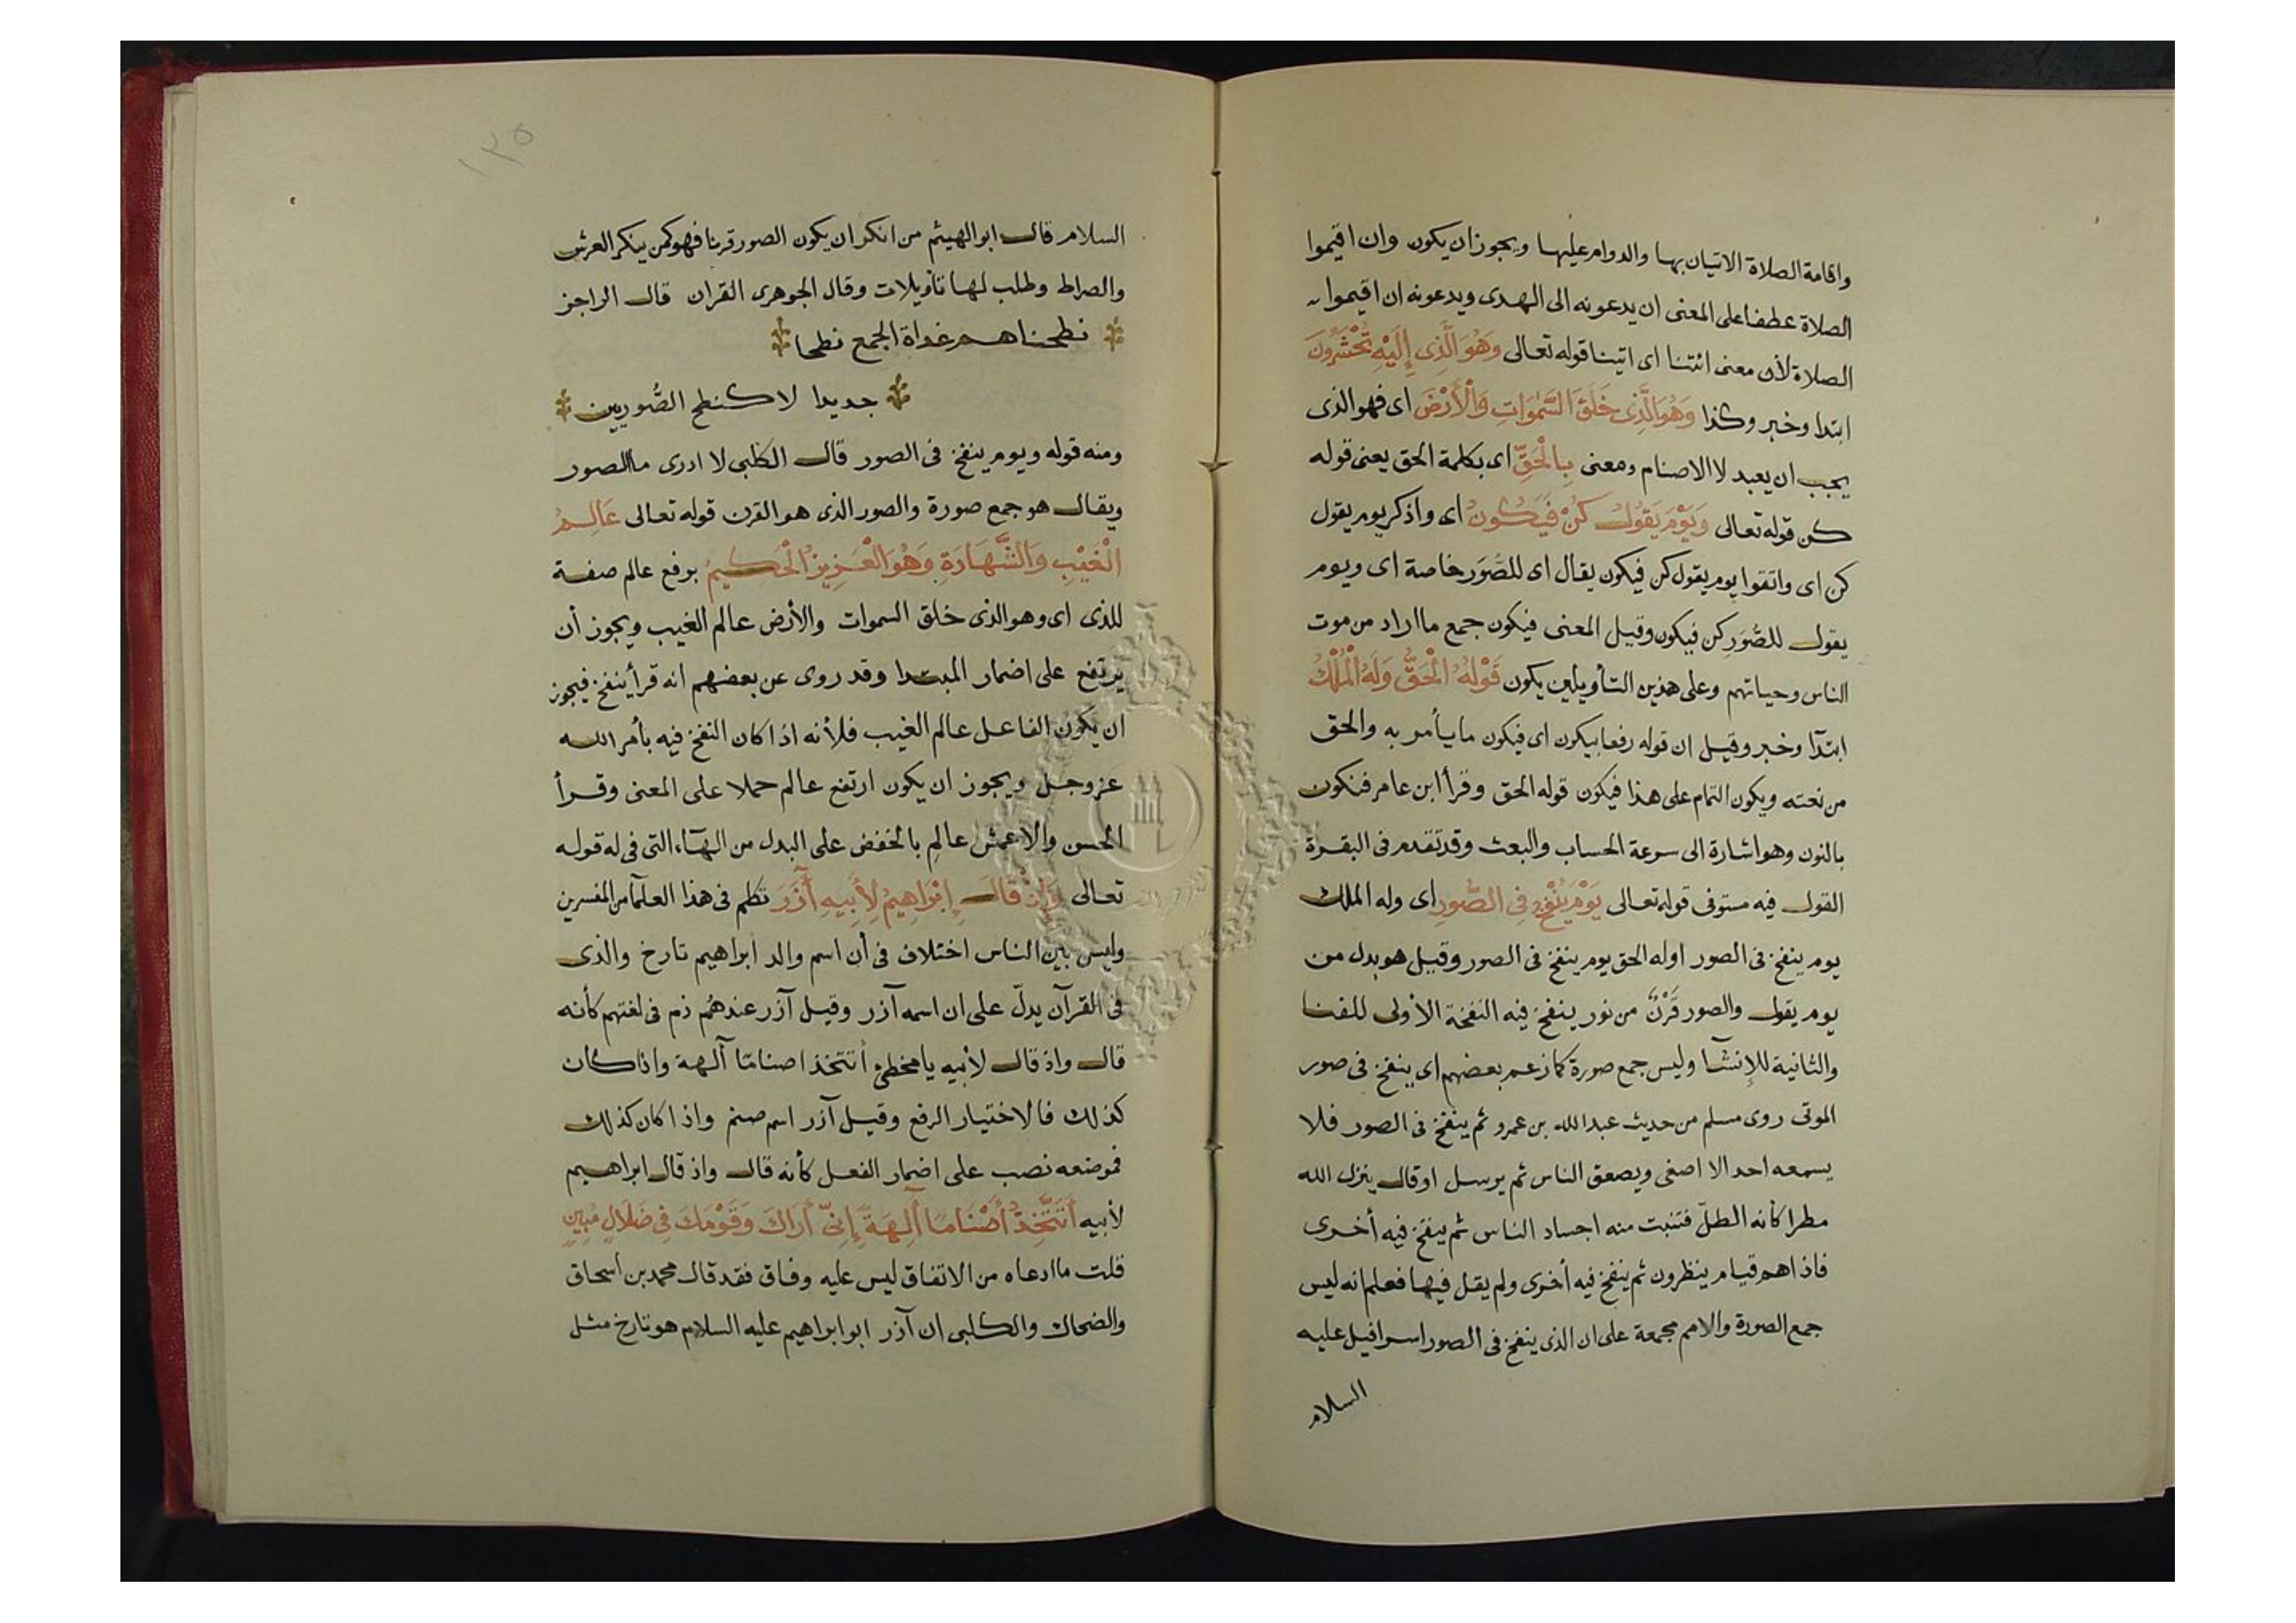 واقامة الصلاة الاتيان بها والدوام عليها ويجوز ان يكون وان اقيموا
الصلاة عطفا على المعنى ان يدعونه الى الهدى ويدعونه ان اقيموا
الصلاة لأن معنى ائتنا اى اتينا قوله تعالى وَهُوَ الَّذِى إِلَيْهِ تُحْشَرُونَ
ابتدا وخبر وكذا وَهُوَ الَّذِى خَلَقَ السَّمٰوَاتِ وَالْأَرْضَ اى فهو الذى
يجب ان يعبد لا الاصنام ومعنى بِالْحَقِّ اى بكلمة الحق يعنى قوله
كن قوله تعالى وَيَوْمَ يَقُولُ كُنْ فَيَكُونُ اى واذكر يوم يقول
كن اى واتقوا يوم يقول كن فيكون يقال اى للصُّوَر خاصة اى ويوم
يقول للصُّوَرِ كن فيكون وقيل المعنى فيكون جمع ما اراد من موت
الناس وحياتهم وعلى هذين التأويلين يكون قَوْلُهُ الْحَقُّ وَلَهُ الْمُلْكُ
ابتدآ وخبر وقيل ان قوله رفعا بيكون اى فيكون ما يأمر به والحق
من نعته ويكون التمام على هذا فيكون قوله الحق وقرأ ابن عامر فنكون
بالنون وهو اشارة الى سرعة الحساب والبعث وقد تقدم فى البقرة
القول فيه مستوفى قوله تعالى يَوْمَ يُنْفَخُ فِى الصُّورِ اى وله الملك
يوم ينفخ فى الصور اوله الحق يوم ينفخ فى الصور وقيل هو بدل من
يوم يقول والصور قَرْنٌ من نور ينفخ فيه النفخة الأولى للفنا
والثانية للإنشآ وليس جمع صورة كما زعم بعضهم اى ينفخ فى صور
الموتى روى مسلم من حديث عبد الله بن عمرو ثم ينفخ فى الصور فلا
يسمعه احد الا اصغى ويصعق الناس ثم يرسل او قال ينزل الله
مطرا كأنه الطلّ فتنبت منه اجساد الناس ثم ينفخ فيه أخرى
فاذا هم قيام ينظرون ثم ينفخ فيه أخرى ولم يقل فيها فعلم انه ليس
جمع الصورة والامم مجمعة على ان الذى ينفخ فى الصور اسرافيل عليه
السلام
١٣٥
السلام قال ابو الهيثم من انكر ان يكون الصور قرنا فهو كمن ينكر العرش
والصراط وطلب لها تأويلات وقال الجوهرى القران قال الراجز
نطحناهم غداة الجمع نطحا
جديدا لا كنطح الصُّوريين
ومنه قوله ويوم ينفخ فى الصور قال الكلبى لا ادرى ما الصور
ويقال هو جمع صورة والصور الذى هو القرن قوله تعالى عَالِمُ
الْغَيْبِ وَالشَّهَادَةِ وَهُوَ الْعَزِيزُ الْحَكِيمُ برفع عالم صفة
للذى اى وهو الذى خلق السموات والأرض عالم الغيب ويجوز أن
يرتفع على اضمار المبتدا وقد روى عن بعضهم انه قرأ ينفخ فيجوز
ان يكون الفاعل عالم الغيب فلأنه اذا كان النفخ فيه بأمر الله
عز وجل ويجوز ان يكون ارتفع عالم حملا على المعنى وقرأ
الحسن والاعمش عالمِ بالخفض على البدل من الهآء التى فى له قوله
تعالى وَإِذْ قَالَ إِبْرَاهِيمُ لِأَبِيهِ آزَرَ تكلم فى هذا العلمآ من المفسرين
وليس بين الناس اختلاف فى أن اسم والد ابراهيم تارخ والذى
فى القرآن يدلّ على ان اسمه آزر وقيل آزر عندهُم ذم فى لغتهم كأنه
قال واذ قال لأبيه يا مخطئ أتتخذ اصناما آلهة واذا كان
كذلك فالاختيار الرفع وقيل آزر اسم صنم واذا كان كذلك
فموضعه نصب على اضمار الفعل كأنه قال واذ قال ابراهيم
لأبيه أَتَتَّخِذُ أَصْنَامًا آلِهَةً إِنِّى أَرَاكَ وَقَوْمَكَ فِى ضَلَالٍ مُبِينٍ
قلت ما ادعاه من الاتفاق ليس عليه وفاق فقد قال محمد بن اسحاق
والضحاك والكلبى ان آزر ابو ابراهيم عليه السلام هو تارخ مثل